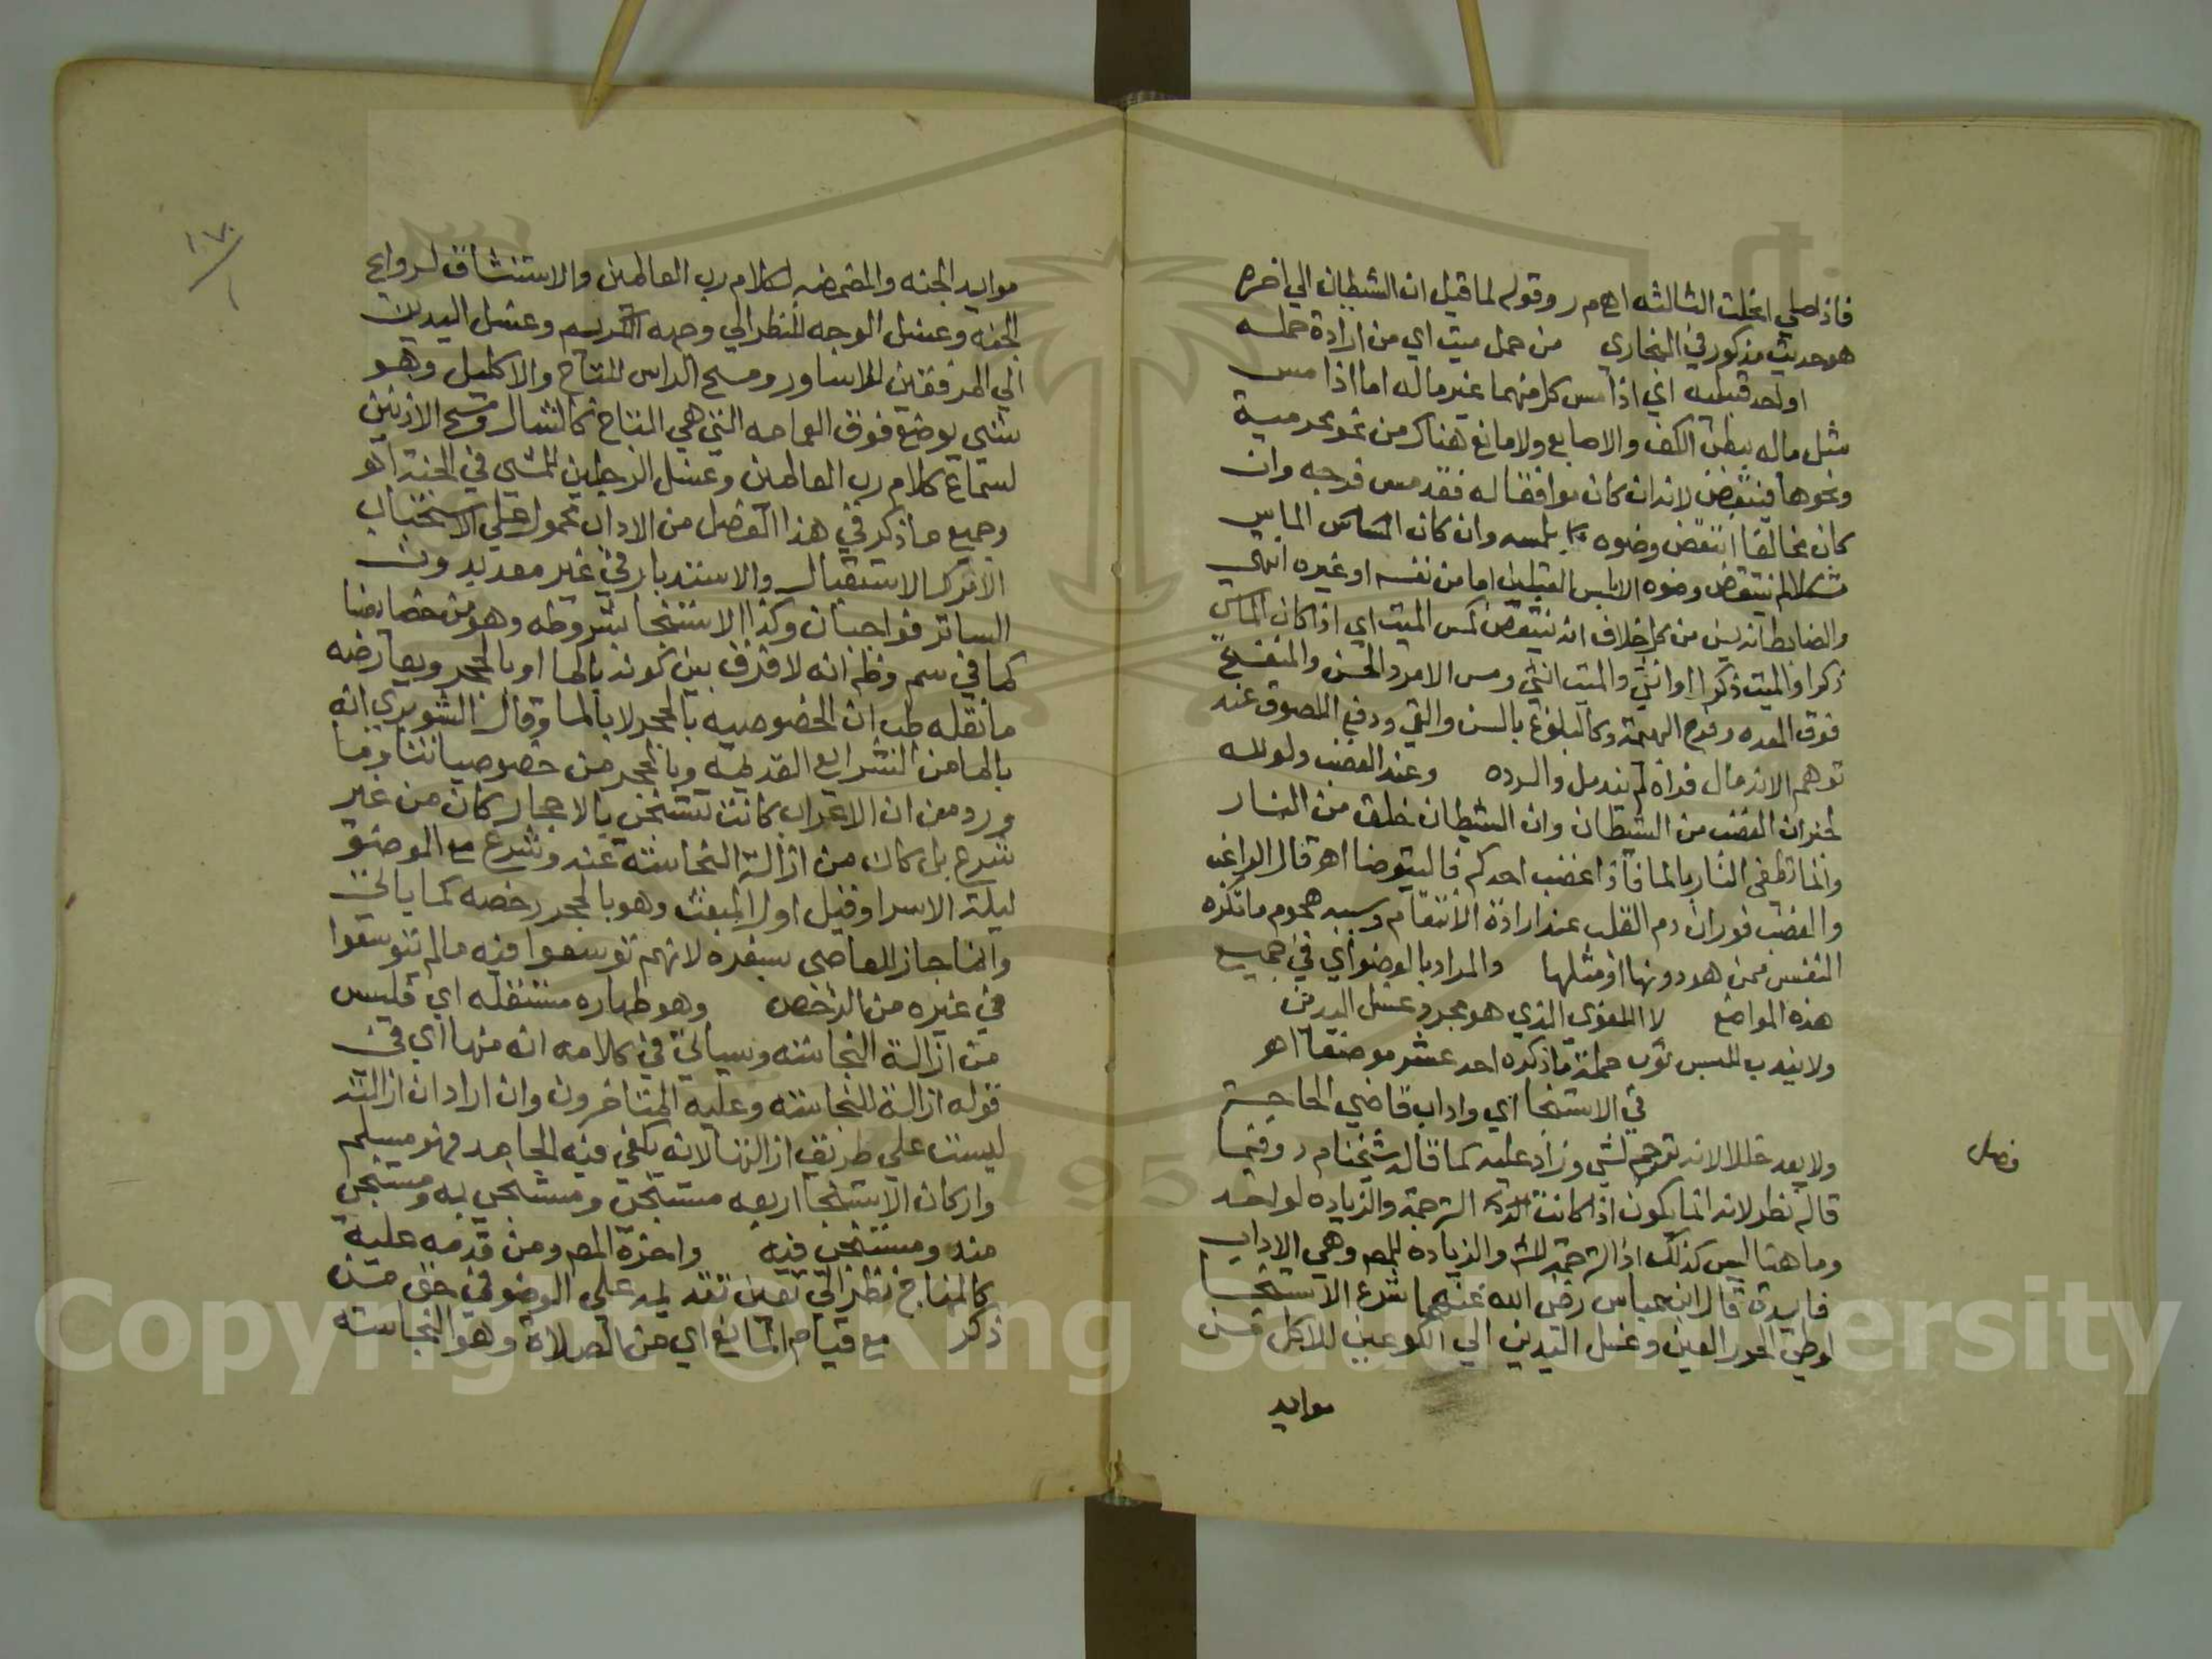 فاذا صلي انحلت الثالثه اهم ر وقوله لما قيل ان الشيطان الي اخره
هو حديث مذكور في البخاري من حمل ميت اي من ارادة حمله
او احد قبليه اي اذا مس كل منهما غير ماله اما اذا مس
مثل ماله ببطن الكف والاصابع ولا مانع هناك من نحو محرمية
ونحوها فينتقض لانه ان كان موافقا له فقد مس فرجه وان
كان مخالفا انتقض وضوه بلمسه وان كان الماس
مشكلا لم ينتقض وضوه الا بلمس القبلين اما من نفسه او غيره انتهي
والضابط انه يسن من كل خلاف انه ينتقض كمس الميت اي اذا كان الماس
ذكرا والميت ذكرا او انثي والميت انثي ومس الامرد الحسن والمنفتح
فوق المعده وفرج البهيمة وكالبلوغ بالسن والقي ودفع اللصوق عند
توهم الاندمال فراه لم يندمل والرده وعند الغضب ولو لله
لخبر ان الغضب من الشيطان وان الشيطان خلق من النار
وانما تطفي النار بالما فاذا غضب احدكم فاليتوضا اهر قال الراغب
والغضب فوران دم القلب عند ارادة الانتقام وسببه هجوم ما تكره
النفس ممن هو دونها او مثلها والمراد بالوضو اي في جميع
هذه المواضع لا اللغوي الذي هو مجرد غسل اليدين
ولا يندب للبس ثوب جملة ما ذكره احد عشر موضعا اهر
فصل
في الاستنجا اي واداب قاضي الحاجة
ولا يعد خللا لانه ترجم لشي وزاد عليه كما قاله شيخنا م ر وفيما
قاله نظر لانه انما يكون اذا كانت الترجمة والزياده لواحد
وما هنا ليس كذلك اذ الترجمة للش والزيادة للمصر وهي الاداب
فايدة قال ابن عباس رضي الله عنهما شرع الاستنجا
لوطئ الحور العين وغسل اليدين الي الكوعين للاكل من
موايد
موايد الجنه والمضمضه لكلام رب العالمين والاستنشاق لروايح
الجنه وغسل الوجه للنظر الي وجهه الكريم وغسل اليدين
الي المرفقين للاساور ومسح الراس للتاج والاكليل وهو
شي يوضع فوق العمامه التي هي التاج كالشال ومسح الاذنين
لسماع كلام رب العالمين وغسل الرجلين للمشي في الجنة اهر
وجميع ما ذكر في هذا الفصل من الاداب محمول علي الاستحباب
الا ترك الاستقبال والاستدبار في غير معد بدون
الساتر فواجبان وكذا الاستنجا بشروطه وهو من خصايصنا
كما في سم وظم انه لا فرق بين كونه بالما او بالحجر ويعارضه
ما نقله طب ان الخصوصيه بالحجر لا بالما وقال الشوبري انه
بالما من الشرايع القديمه وبالحجر من خصوصياتنا وما
ورد من ان الاعراب كانت تستنجي بالاحجار كان من غير
شرع بل كان من ازالة النجاسة عنه وشرع مع الوضو
ليلة الاسرا وقيل اول المبعث وهو بالحجر رخصه كما ياتي
وانما جاز للعاصي بسفره لانهم توسعوا فيه ما لم يتوسعوا
في غيره من الرخص وهو طهاره مستقله اي فليس
من ازالة النجاسه وسياتي في كلامه انه منها اي في
قوله ازالة للنجاسه وعليه المتاخرون وان اراد ان ازالته
ليست علي طريق ازالتها لانه يكفي فيه الجامد فهو مسلم
واركان الاستنجا اربعه مستنجي ومستنجي به ومستنجي
منه ومستنجي فيه واخره المص ومن قدمه عليه
كالمنهاج نظر الي تعين تقديمه علي الوضو في حق من
ذكر مع قيام المانع اي من الصلاة وهو النجاسه
Copyright © King Saud University
1957